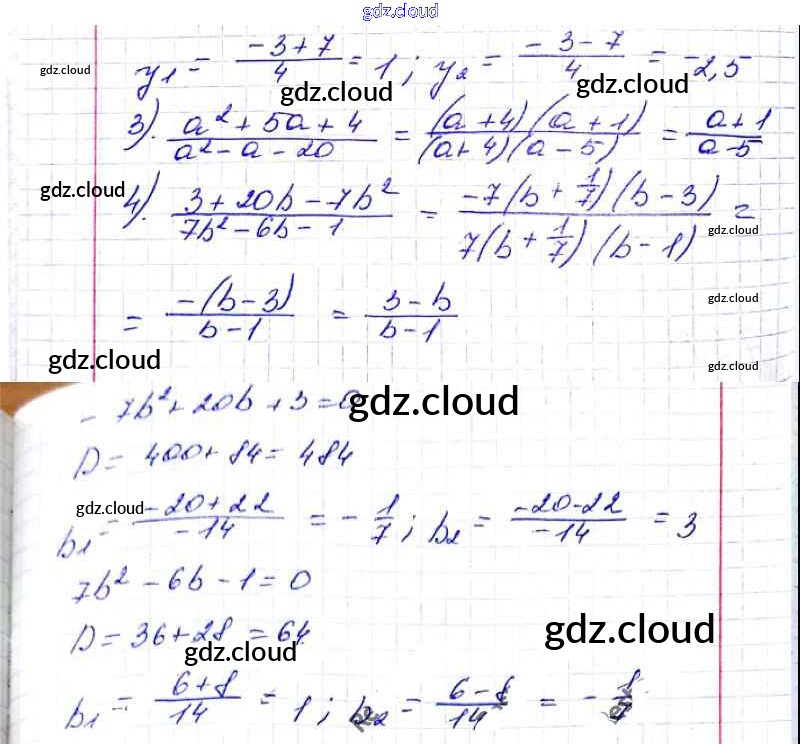 gdz.cloud
y₁ = (-3+7)/4 = 1; y₂ = (-3-7)/4 = -2,5
gdz.cloud gdz.cloud gdz.cloud
3). (a² + 5a + 4)/(a² - a - 20) = ((a+4)(a+1))/((a+4)(a-5)) = (a+1)/(a-5)
gdz.cloud gdz.cloud
4). (3+20b-7b²)/(7b²-6b-1) = (-7(b+1/7)(b-3))/(7(b+1/7)(b-1)) =
gdz.cloud
= (-(b-3))/(b-1) = (3-b)/(b-1)
gdz.cloud
gdz.cloud gdz.cloud
-7b²+20b+3=0
gdz.cloud
D = 400+84 = 484
b₁ = (-20+22)/(-14) = -1/7; b₂ = (-20-22)/(-14) = 3
gdz.cloud
7b² - 6b - 1 = 0
D = 36+28 = 64
gdz.cloud gdz.cloud
b₁ = (6+8)/14 = 1; b₂ = (6-8)/14 = -1/7